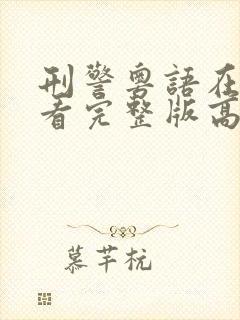 刑警粤語在
看完整版高
慕芊杭